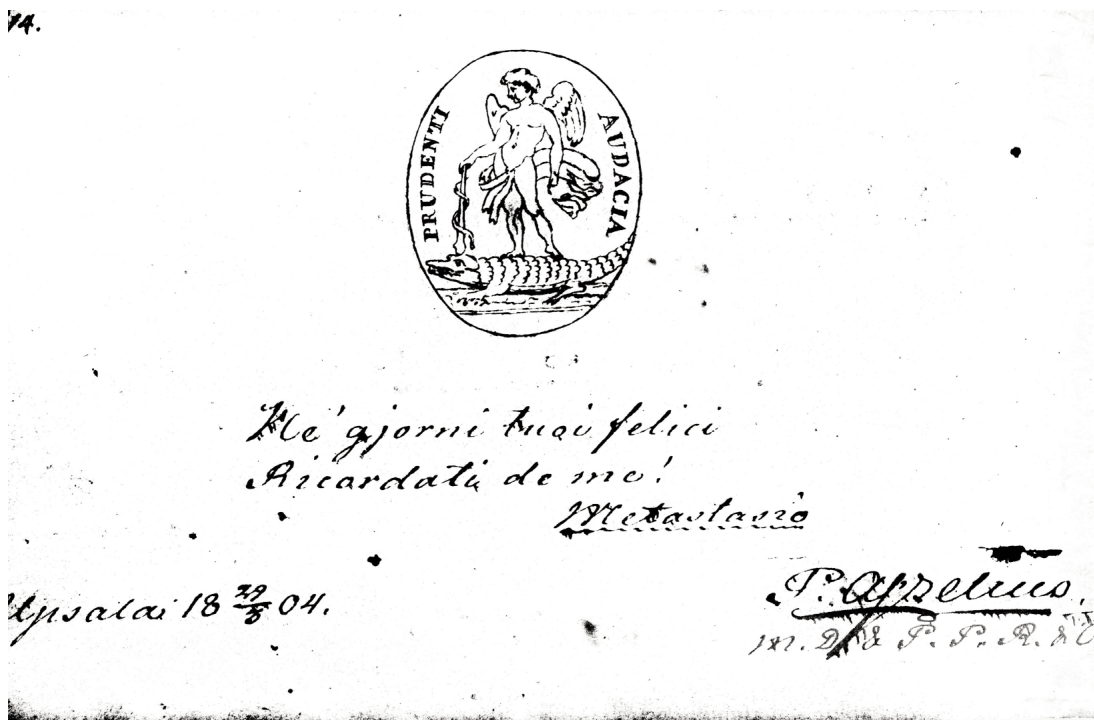 74.
PRUDENTI AUDACIA
Ne' gjorni tuoi felici
Ricordati de me!
Metastasio
Upsala 18 29/8 04.
P. Afzelius.
M. D. & P. P. R. & O